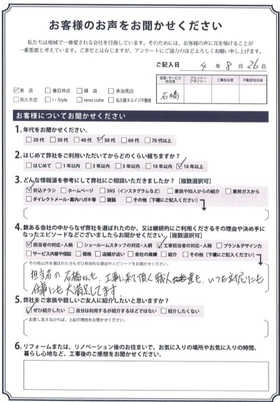 お客様のお声をお聞かせください
私たちは地域で一番愛される会社を目指しています。そのためには、お客様の声に耳を傾けることが
一番重要と考えています。ご多忙とは存じますが、アンケートにご協力のほどよろしくお願い申し上げます。
ご記入日 4年8月26日
石橋
本店 春日井店 緑店 多治見店
長久手店 i-Style reno cube 名古屋不動産
お客様についてお聞かせください
1. 年代をお聞かせください。
20代 30代 40代 50代 60代 70代以上
2. はじめて弊社をご利用いただいてからどのくらい経ちますか？
はじめて 1年以内 3年以内 5年以内 10年以内 10年以上
3. どんな情報源を参考にして弊社にご相談いただきましたか？【複数選択可】
折込チラシ ホームページ SNS（インスタグラムなど） 家族や知人からの紹介 東邦ガスから
ダイレクトメール・案内ハガキ等 雑誌 その他（下欄にご記入ください）
4. 数ある会社の中からなぜ弊社を選ばれたのか、又は継続的にご利用くださるその理由や決め手に
なったエピソードなどございましたらお聞かせください。【複数選択可】
担当者の対応・人柄 ショールームスタッフの対応・人柄 工事担当者の対応・人柄 プラン＆デザイン力
サービス内容や保証 価格 会社の信頼・実績 紹介 その他（下欄にご記入ください）
担当者の石橋さんも、工事に来て頂く職人
仕事にも大満足してます。
5. 弊社をご家族や親しいご友人に紹介したいと思いますか？
ぜひ紹介したい 自分は利用するが紹介するほどではない 紹介したくない
6. リフォームまたは、リノベーション後のお住まいで、お気に入りの場所やお気に入りの時間、
暮らし心地など、工事後のご感想をお聞かせください。